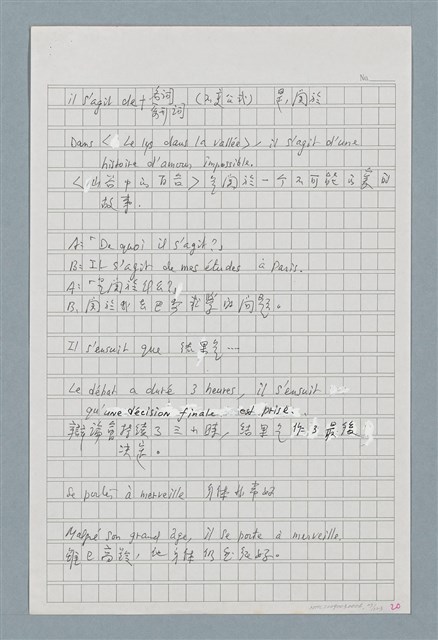 No.
il s'agit de + 名詞 (不更公式) 是, 関於
動詞
Dans < Le lys dans la vallée>, il s'agit d'une
histoire d'amour impossible.
<山谷中的百合> 是関於一个不可能的愛的
故事.
A: "De quoi il s'agit?,
B: Il s'agit de mes études à Paris.
A: "是関於什么?,
B: 関於我去巴黎求學的问題。
Il s'ensuit que 結果是…
Le débat a duré 3 heures, il s'ensuit
qu'une décision finale est prise.
辯論會持续了三小時, 結果是作了最後
决定。
Se porter à merveille 身体非常好
Malgré son grand âge, il se porte à merveille.
雖已高齡, 他身体仍然很好。
20